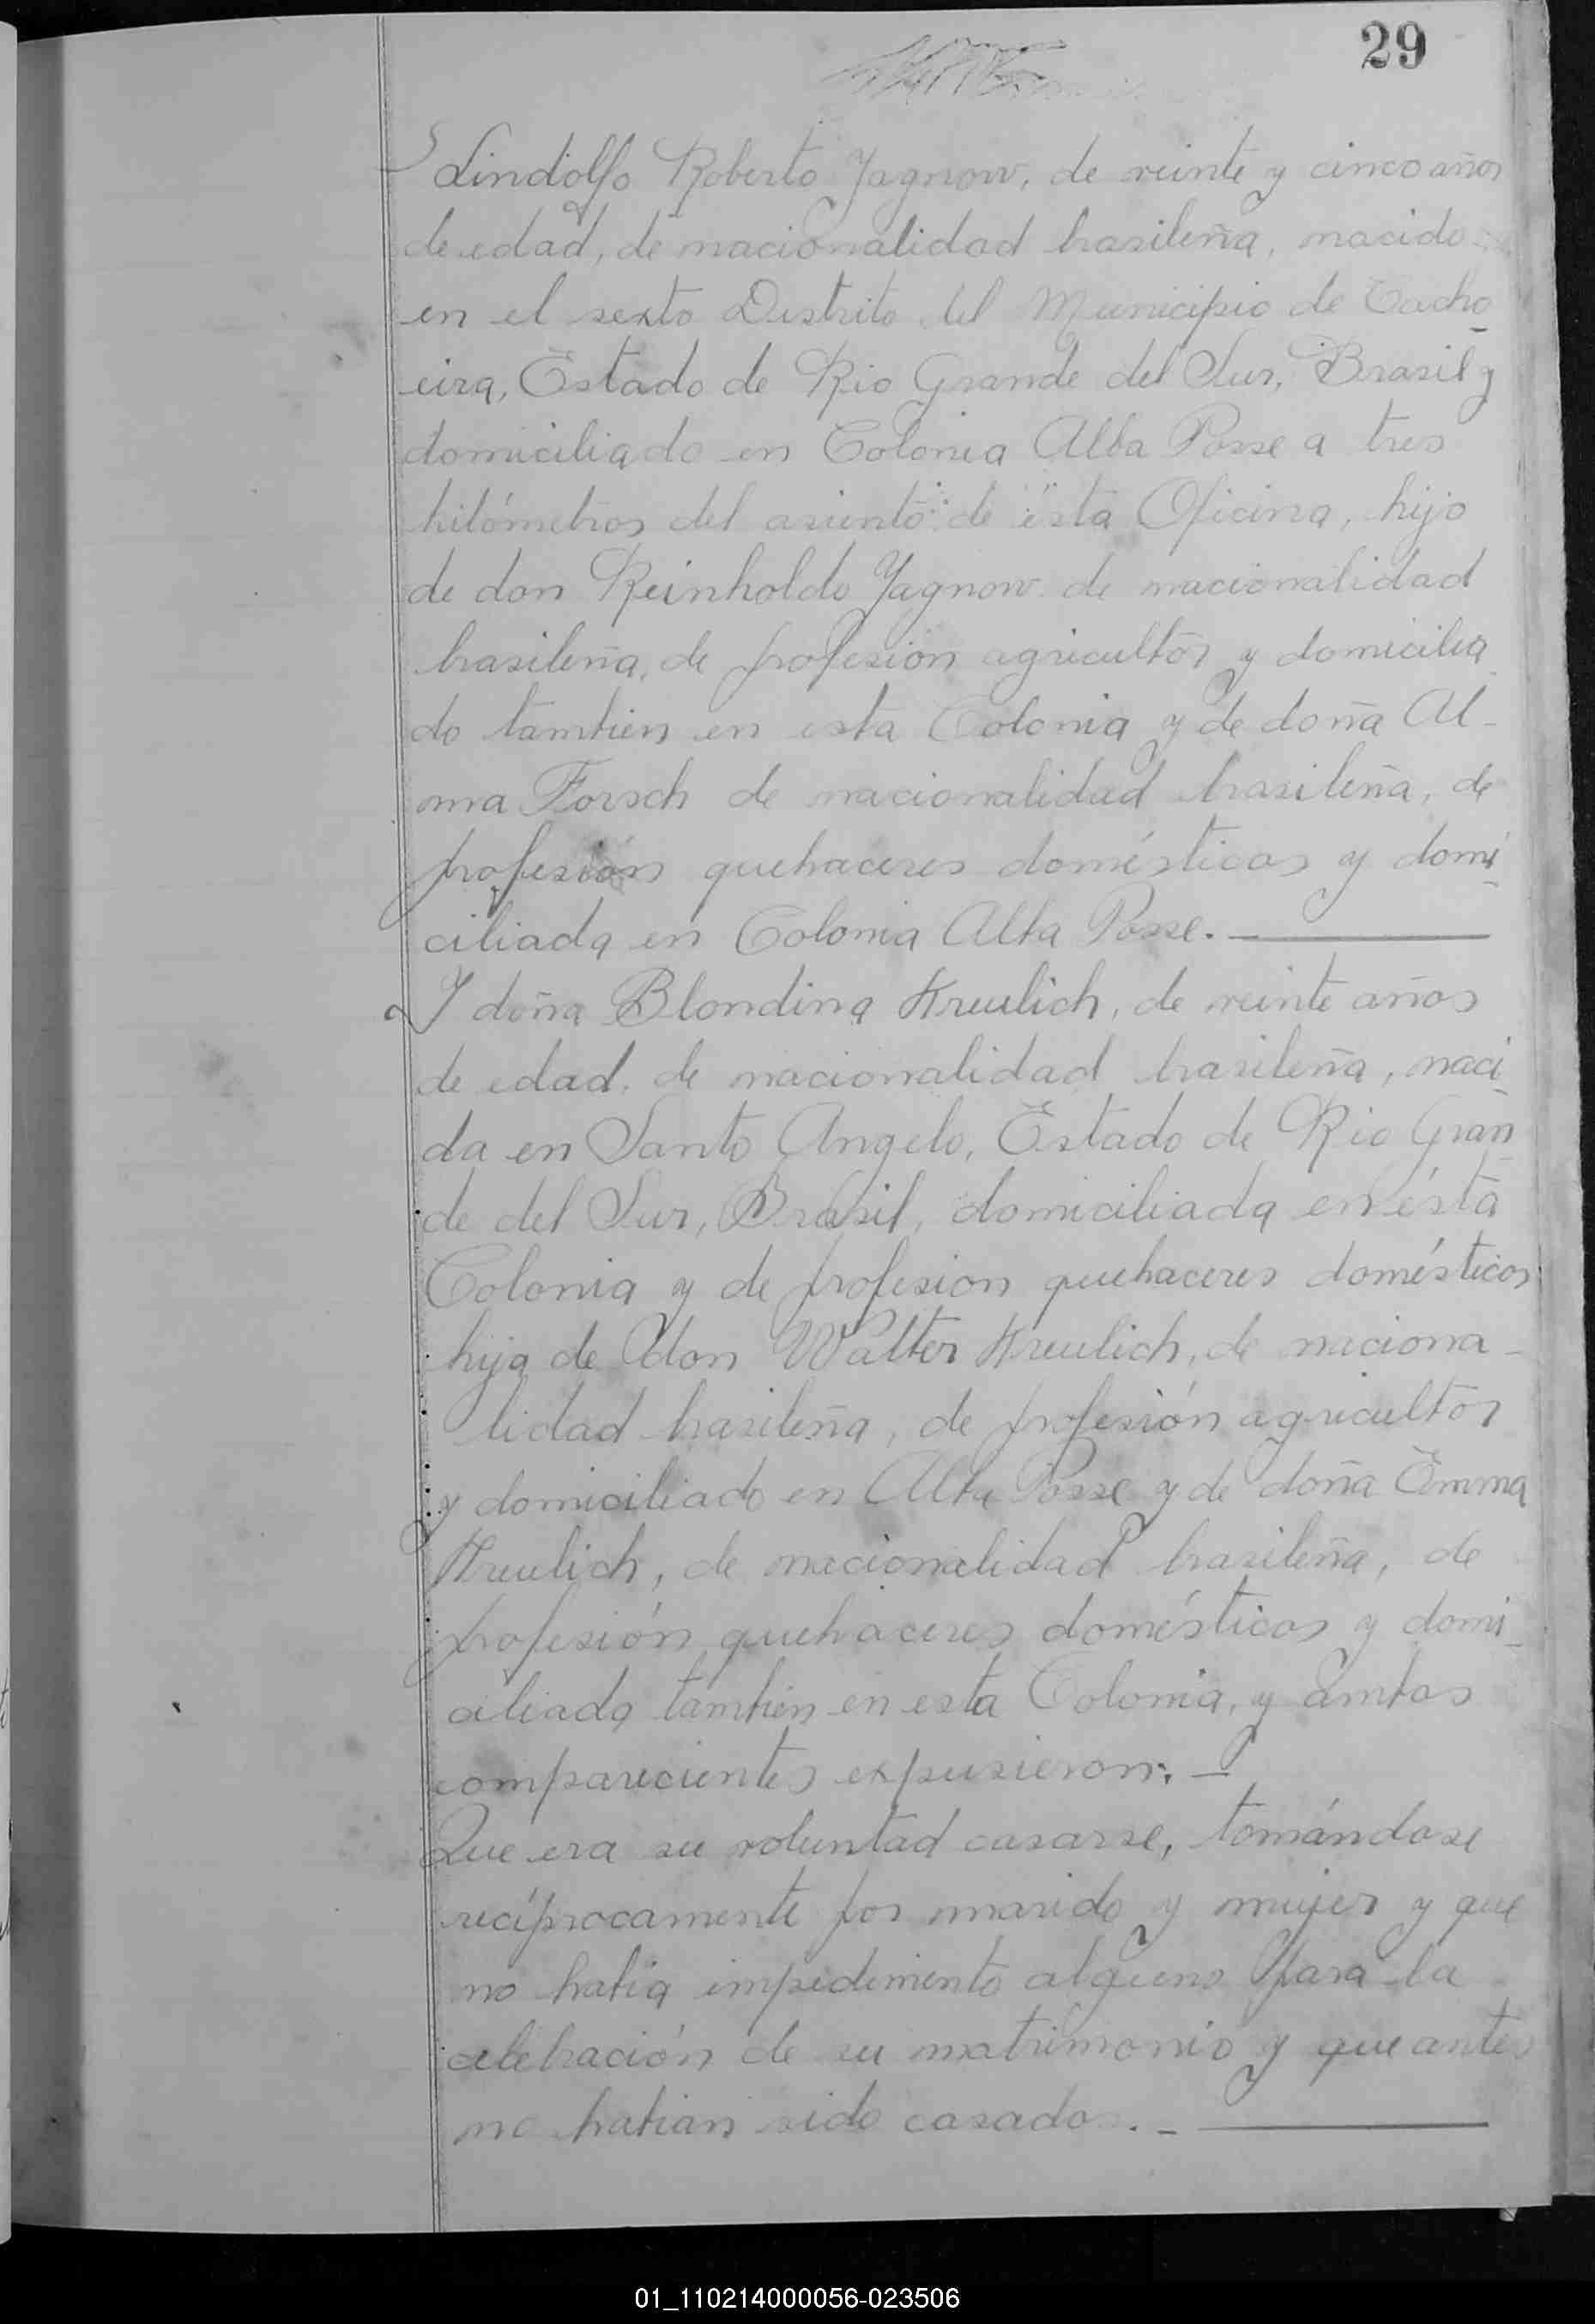 29
Lindolfo Roberto Yagnow, de veinte y cinco años
de edad, de nacionalidad brasileña, nacido
en el sexto Distrito del Municipio de Cacho
eira, Estado de Rio Grande del Sur, Brasil y
domiciliado en Colonia Alba Posse a tres
kilómetros del asiento de ésta Oficina, hijo
de don Reinholdo Yagnow de nacionalidad
brasileña, de profesión agricultor y domicilia
do tambien en esta Colonia y de doña Al-
ma Forsch de nacionalidad brasileña, de
profesión quehaceres domésticos y domi-
ciliada en Colonia Alba Posse.-
Y doña Blondina Kreulich, de veinte años
de edad, de nacionalidad brasileña, naci-
da en Santo Angelo, Estado de Rio Gran
de del Sur, Brasil, domiciliada en ésta
Colonia y de profesion quehaceres domésticos
hija de don Walter Kreulich, de naciona-
lidad brasileña, de profesión agricultor
y domiciliado en Alba Posse y de doña Emma
Kreulich, de nacionalidad brasileña, de
profesión quehaceres domésticos y domi-
ciliada tambien en esta Colonia, y ambos
comparecientes expusieron:-
Que era su voluntad casarse, tomándose
recíprocamente por marido y mujer y que
no habia impedimento alguno para la
celebración de su matrimonio y que antes
no habian sido casados.-
01_110214000056-023506